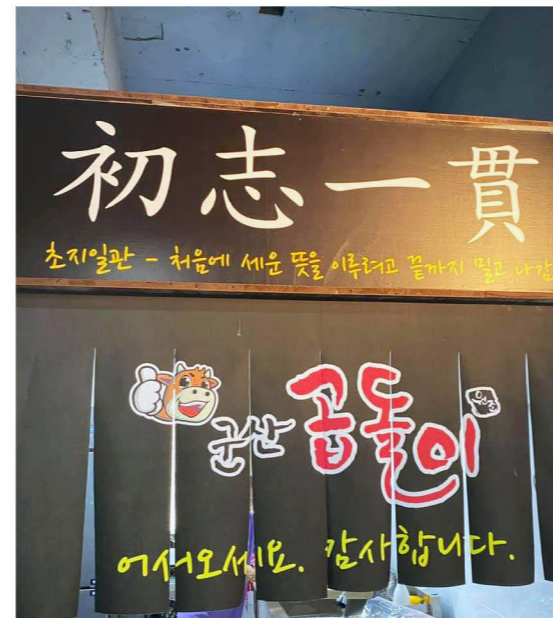 初志一貫
초지일관 - 처음에 세운 뜻을 이루려고 끝까지 밀고 나감
군산 곱돌이
어서오세요. 감사합니다.